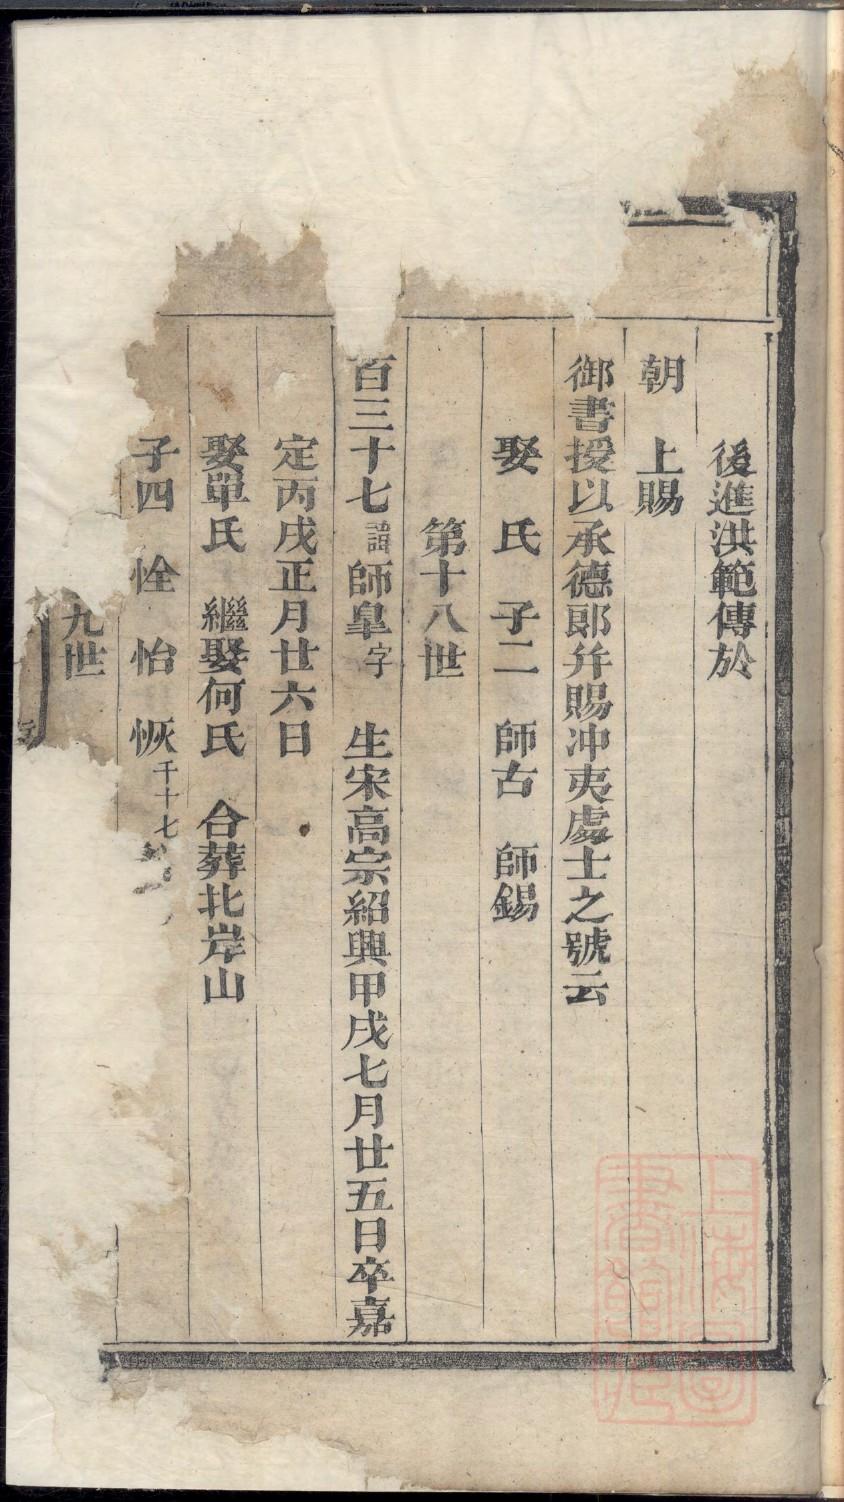 後進洪範傳於
朝　上賜
御書授以承德郎幷賜冲夷處士之號云
娶　氏　子二　師古　師錫
第十八世
百三十七諱師皐字　生宋高宗紹興甲戌七月廿五日卒嘉
定丙戌正月廿六日
娶單氏　繼娶何氏　合葬北岸山
子四　恮　怡　恢千十七
九世
上海圖書館藏